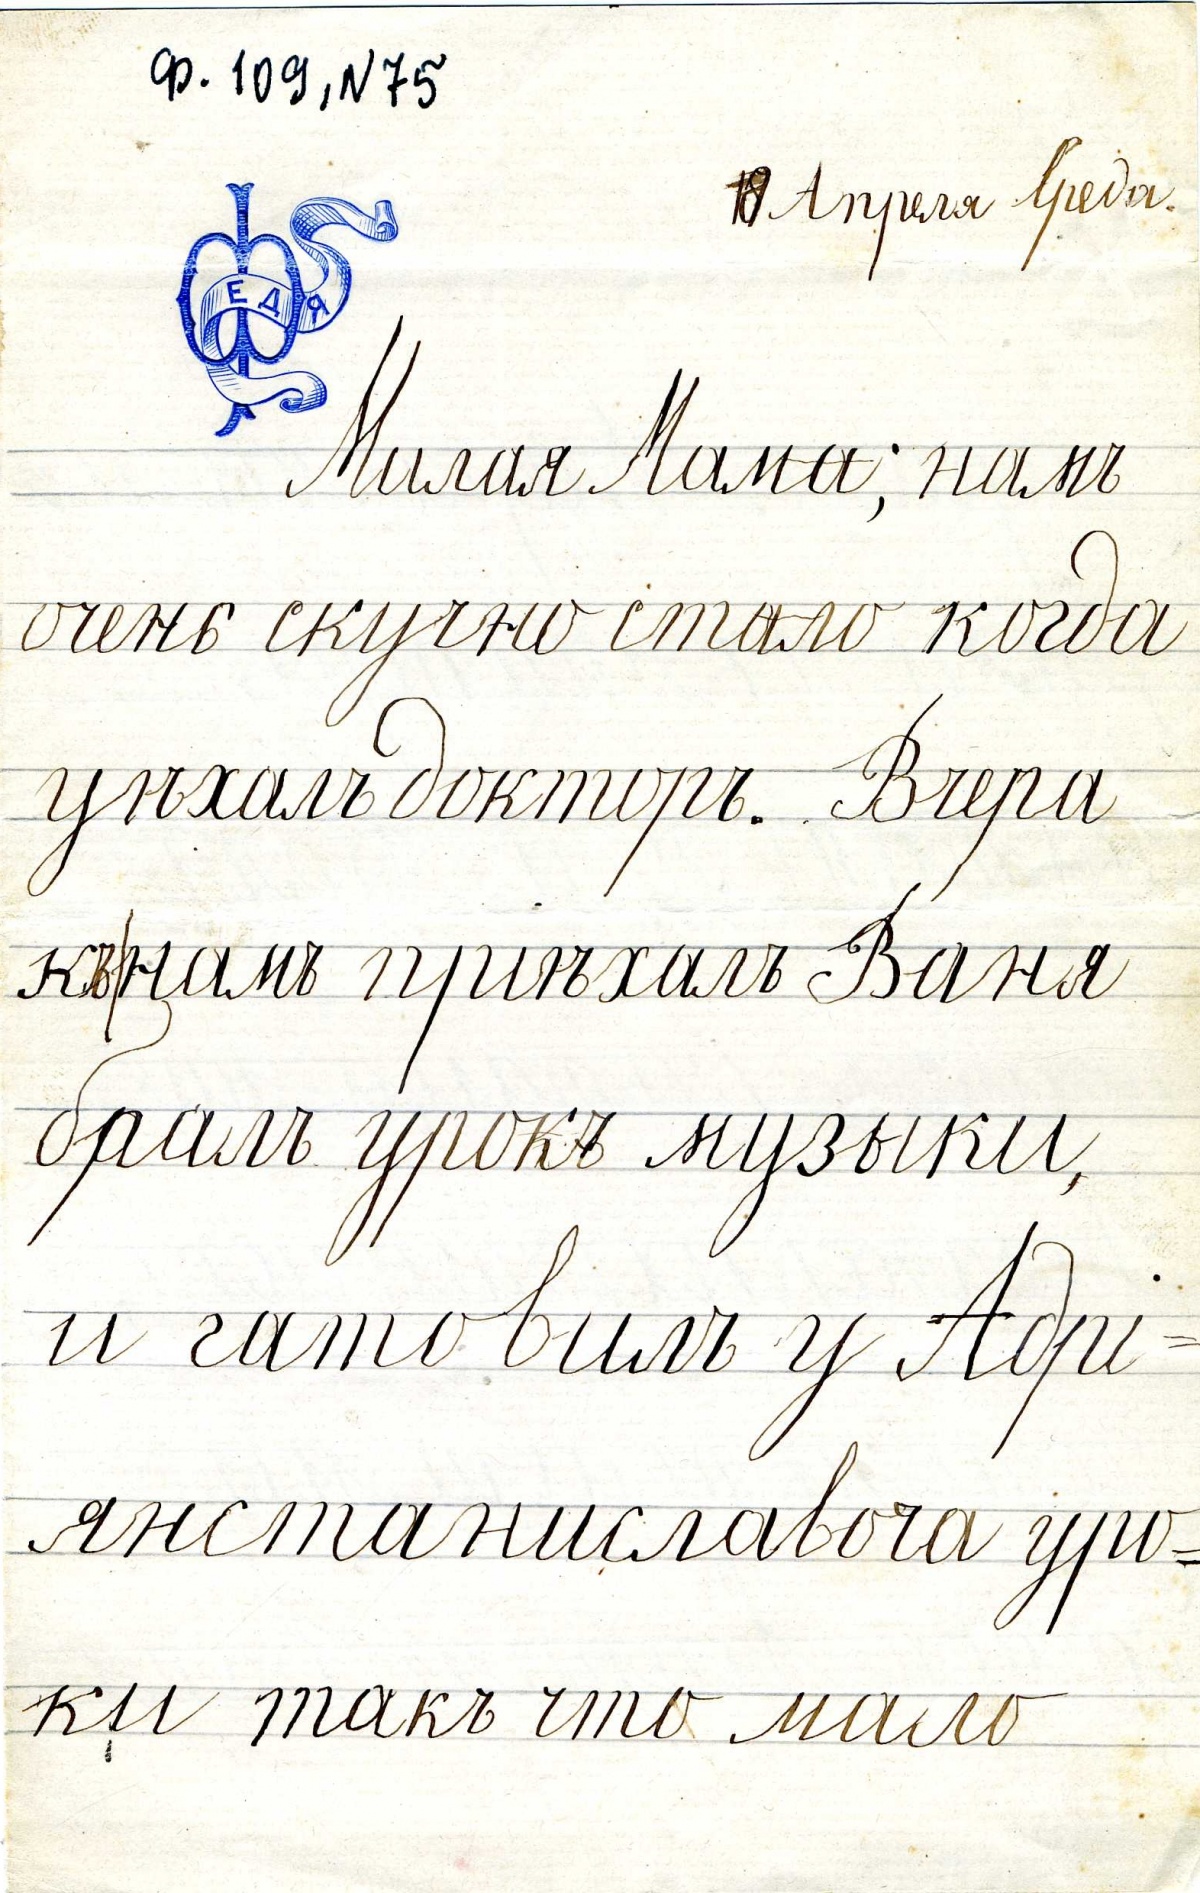 Ф. 109, N 75
18 Апреля Среда.
ФЕДЯ
Милая Мама; намъ
очень скучно стало когда
уѣхалъ докторъ. Вчера
къ намъ приѣхалъ Ваня
бралъ урокъ музыки,
и гатовилъ у Адрі=
янстаниславоча уро=
ки такъ что мало